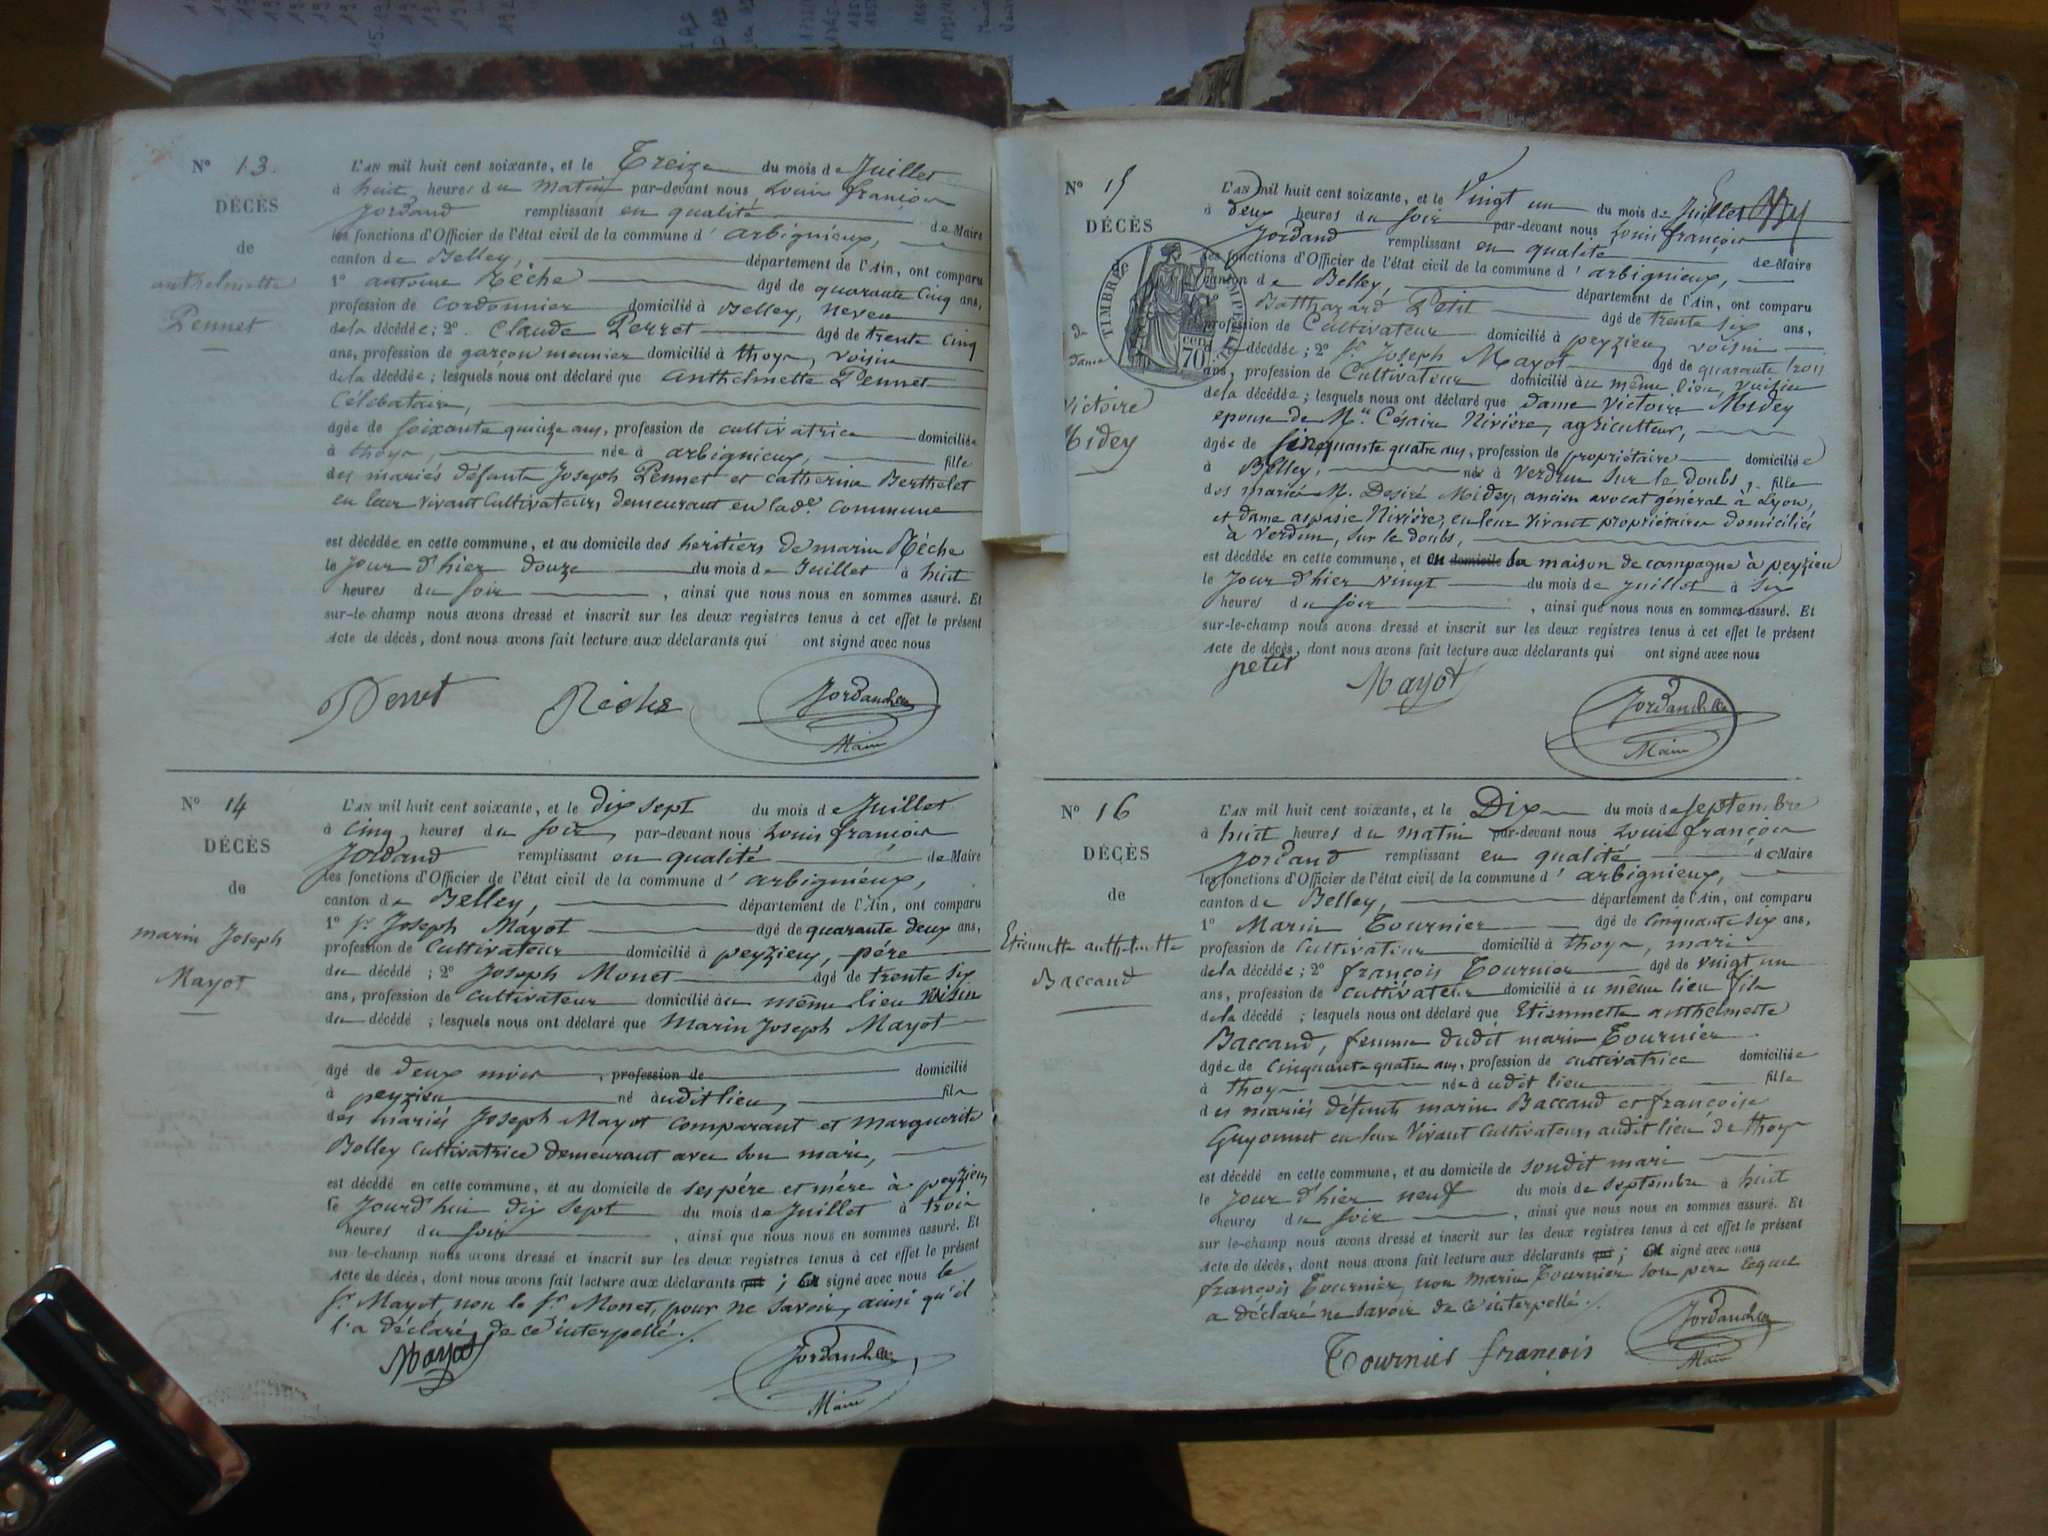 N° 13.
DÉCÈS
de
anthelmette
Pennet
L'AN mil huit cent soixante, et le Treize du mois de Juillet
à huit heures du matin par-devant nous Louis françois
Jordand remplissant en qualité de Maire
les fonctions d'Officier de l'état civil de la commune d' arbignieux,
canton de Belley, département de l'Ain, ont comparu
1° antoine Rèche agé de quarante cinq ans,
profession de cordonnier domicilié à Belley, neveu
de la décédée; 2°. Claude Perret âgé de trente cinq
ans, profession de garçon meunier domicilié à thoys, voisin
de la décédée; lesquels nous ont déclaré que anthelmette Pennet
Célebataire,
âgée de soixante quinze ans, profession de cultivatrice domiciliée
à thoys, née à arbignieux, fille
des mariés défunts Joseph Pennet et catherine Berthelet
en leur vivant cultivateurs, demeurant en lad.e commune
est décédée en cette commune, et au domicile des heritiers de marin Rèche
le jour d'hier douze du mois de Juillet à huit
heures du soir, ainsi que nous nous en sommes assuré. Et
sur-le-champ nous avons dressé et inscrit sur les deux registres tenus à cet effet le présent
Acte de décès, dont nous avons fait lecture aux déclarants qui ont signé avec nous
Perret Rèche Jordand
Maire
N° 14
DÉCÈS
de
marin Joseph
Mayot
L'AN mil huit cent soixante, et le dix sept du mois de Juillet
à cinq heures du soir, par-devant nous Louis françois
Jordand remplissant en qualité de Maire
les fonctions d'Officier de l'état civil de la commune d' arbignieux,
canton de Belley, département de l'Ain, ont comparu
1° Sr Joseph Mayot agé de quarante deux ans,
profession de Cultivateur domicilié à peyzieu, père
du décédé; 2° Joseph Monet âgé de trente six
ans, profession de cultivateur domicilié au même lieu voisin
du décédé; lesquels nous ont déclaré que Marin Joseph Mayot
âgé de deux mois, profession de domicilié
à peyzieu né audit lieu, fils
des mariés Joseph Mayot comparant et marguerite
Bolley cultivatrice demeurant avec son mari,
est décédé en cette commune, et au domicile de ses père et mère à peyzieu
le jourd'hui dix sept du mois de Juillet à trois
heures du soir, ainsi que nous nous en sommes assuré. Et
sur-le-champ nous avons dressé et inscrit sur les deux registres tenus à cet effet le présent
Acte de décès, dont nous avons fait lecture aux déclarants qui; a signé avec nous le
Sr Mayot, non le Sr Monet, pour ne savoir, ainsi qu'il
l'a déclaré de ce interpellé./.
Mayot Jordand
Maire
N° 15
DÉCÈS
de
dame
Victoire
Midey
TIMBRE IMPERIAL
70 cen
L'AN mil huit cent soixante, et le Vingt un du mois de Juillet
à deux heures du soir par-devant nous Louis françois
Jordand remplissant en qualité de Maire
les fonctions d'Officier de l'état civil de la commune d' arbignieux,
canton de Belley, département de l'Ain, ont comparu
1° Balthazard Petit agé de trente six ans,
profession de Cultivateur domicilié à peyzieu, voisin
décédée; 2° Sr Joseph Mayot âgé de quarante trois
ans, profession de Cultivateur domicilié au même lieu, voisin
de la décédée; lesquels nous ont déclaré que dame Victoire Midey
epouse de Mr. Césaire Nivière, agriculteur,
âgée de cinquante quatre ans, profession de propriétaire domiciliée
à Belley, née à Verdun sur le doubs, fille
des mariés M. Desiré Midey, ancien avocat général à Lyon,
et dame aspasie Nivière, en leur vivant propriétaires domiciliés
à Verdun, sur le doubs,
est décédée en cette commune, et au domicile sa maison de campagne à peyzieu
le jour d'hier vingt du mois de juillet à six
heures du soir, ainsi que nous nous en sommes assuré. Et
sur-le-champ nous avons dressé et inscrit sur les deux registres tenus à cet effet le présent
Acte de décès, dont nous avons fait lecture aux déclarants qui ont signé avec nous
petit Mayot Jordand
Maire
N° 16
DÉCÈS
de
Etiennette anthelmette
Baccand
L'AN mil huit cent soixante, et le Dix du mois de septembre
à huit heures du matin par-devant nous Louis françois
Jordand remplissant en qualité de Maire
les fonctions d'Officier de l'état civil de la commune d' arbignieux,
canton de Belley, département de l'Ain, ont comparu
1° Marin Tournier âgé de cinquante six ans,
profession de Cultivateur domicilié à thoys, mari
de la décédée; 2° françois Tournier âgé de vingt un
ans, profession de cultivateur domicilié au même lieu fils
de la décédé; lesquels nous ont déclaré que Etiennette anthelmette
Baccand, femme dudit marin Tournier
âgée de cinquante quatre ans, profession de cultivatrice domiciliée
à thoys née audit lieu fille
des mariés défunts marin Baccand et françoise
Guyonnet en leur vivant cultivateurs audit lieu de thoys
est décédé en cette commune, et au domicile de sondit mari
le jour d'hier neuf du mois de septembre à huit
heures du soir, ainsi que nous nous en sommes assuré. Et
sur-le-champ nous avons dressé et inscrit sur les deux registres tenus à cet effet le présent
Acte de décès, dont nous avons fait lecture aux déclarants qui; a signé avec nous
françois Tournier, non marin Tournier son père lequel
a déclaré ne savoir de ce interpellé./.
Tournier françois Jordand
Maire